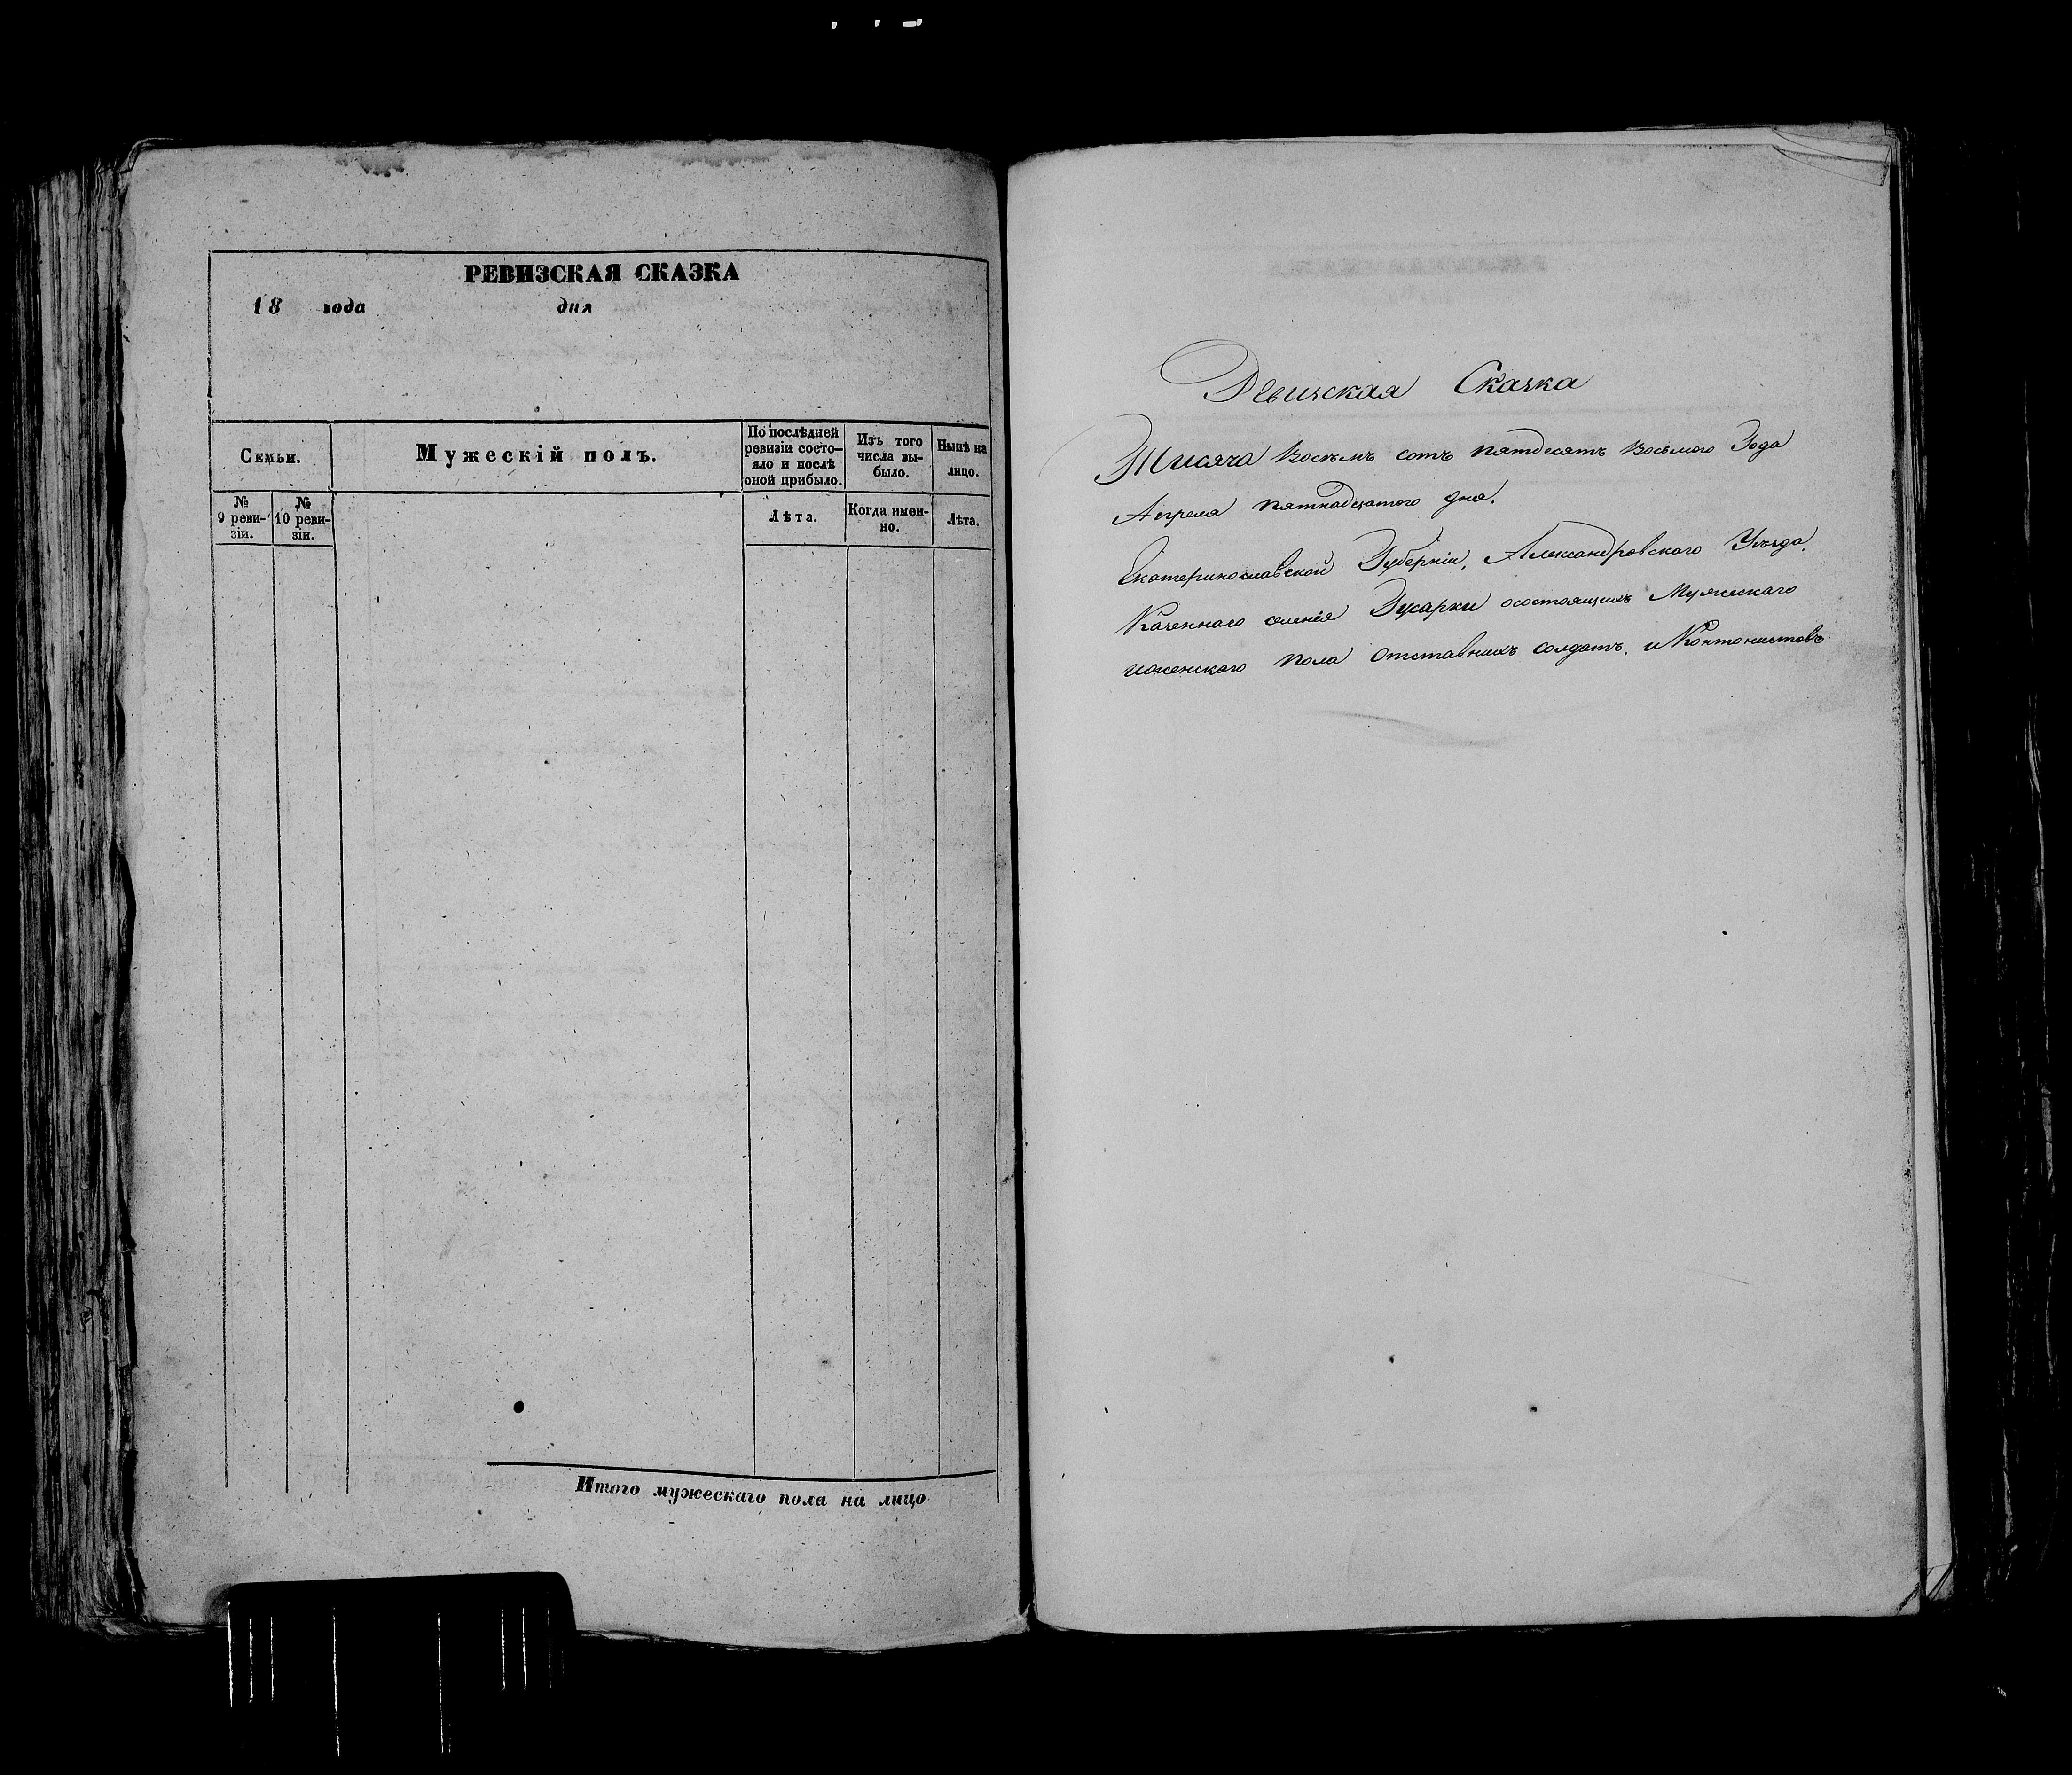 РЕВИЗСКАЯ СКАЗКА
18 года дня
Семьи.
Мужескій полъ.
По послѣдней
ревизіи состо-
яло и послѣ
оной прибыло.
Изъ того
числа вы-
было.
Нынѣ на
лицо.
№
9 реви-
зіи.
№
10 реви-
зіи.
Лѣта.
Когда имен-
но.
Лѣта.
Итого мужескаго пола на лицо
Ревизская Сказка
Тисяча Восемъ сотъ пятдесятъ Восьмого Года
Апреля пятнадцатого дня.
Екатеринославской Губерніи, Александровского Уѣзда.
Казеннаго селенія Гусарки осостоящихъ Мужескаго
иженскаго пола Отставнихъ солдатъ, и Контонистовъ